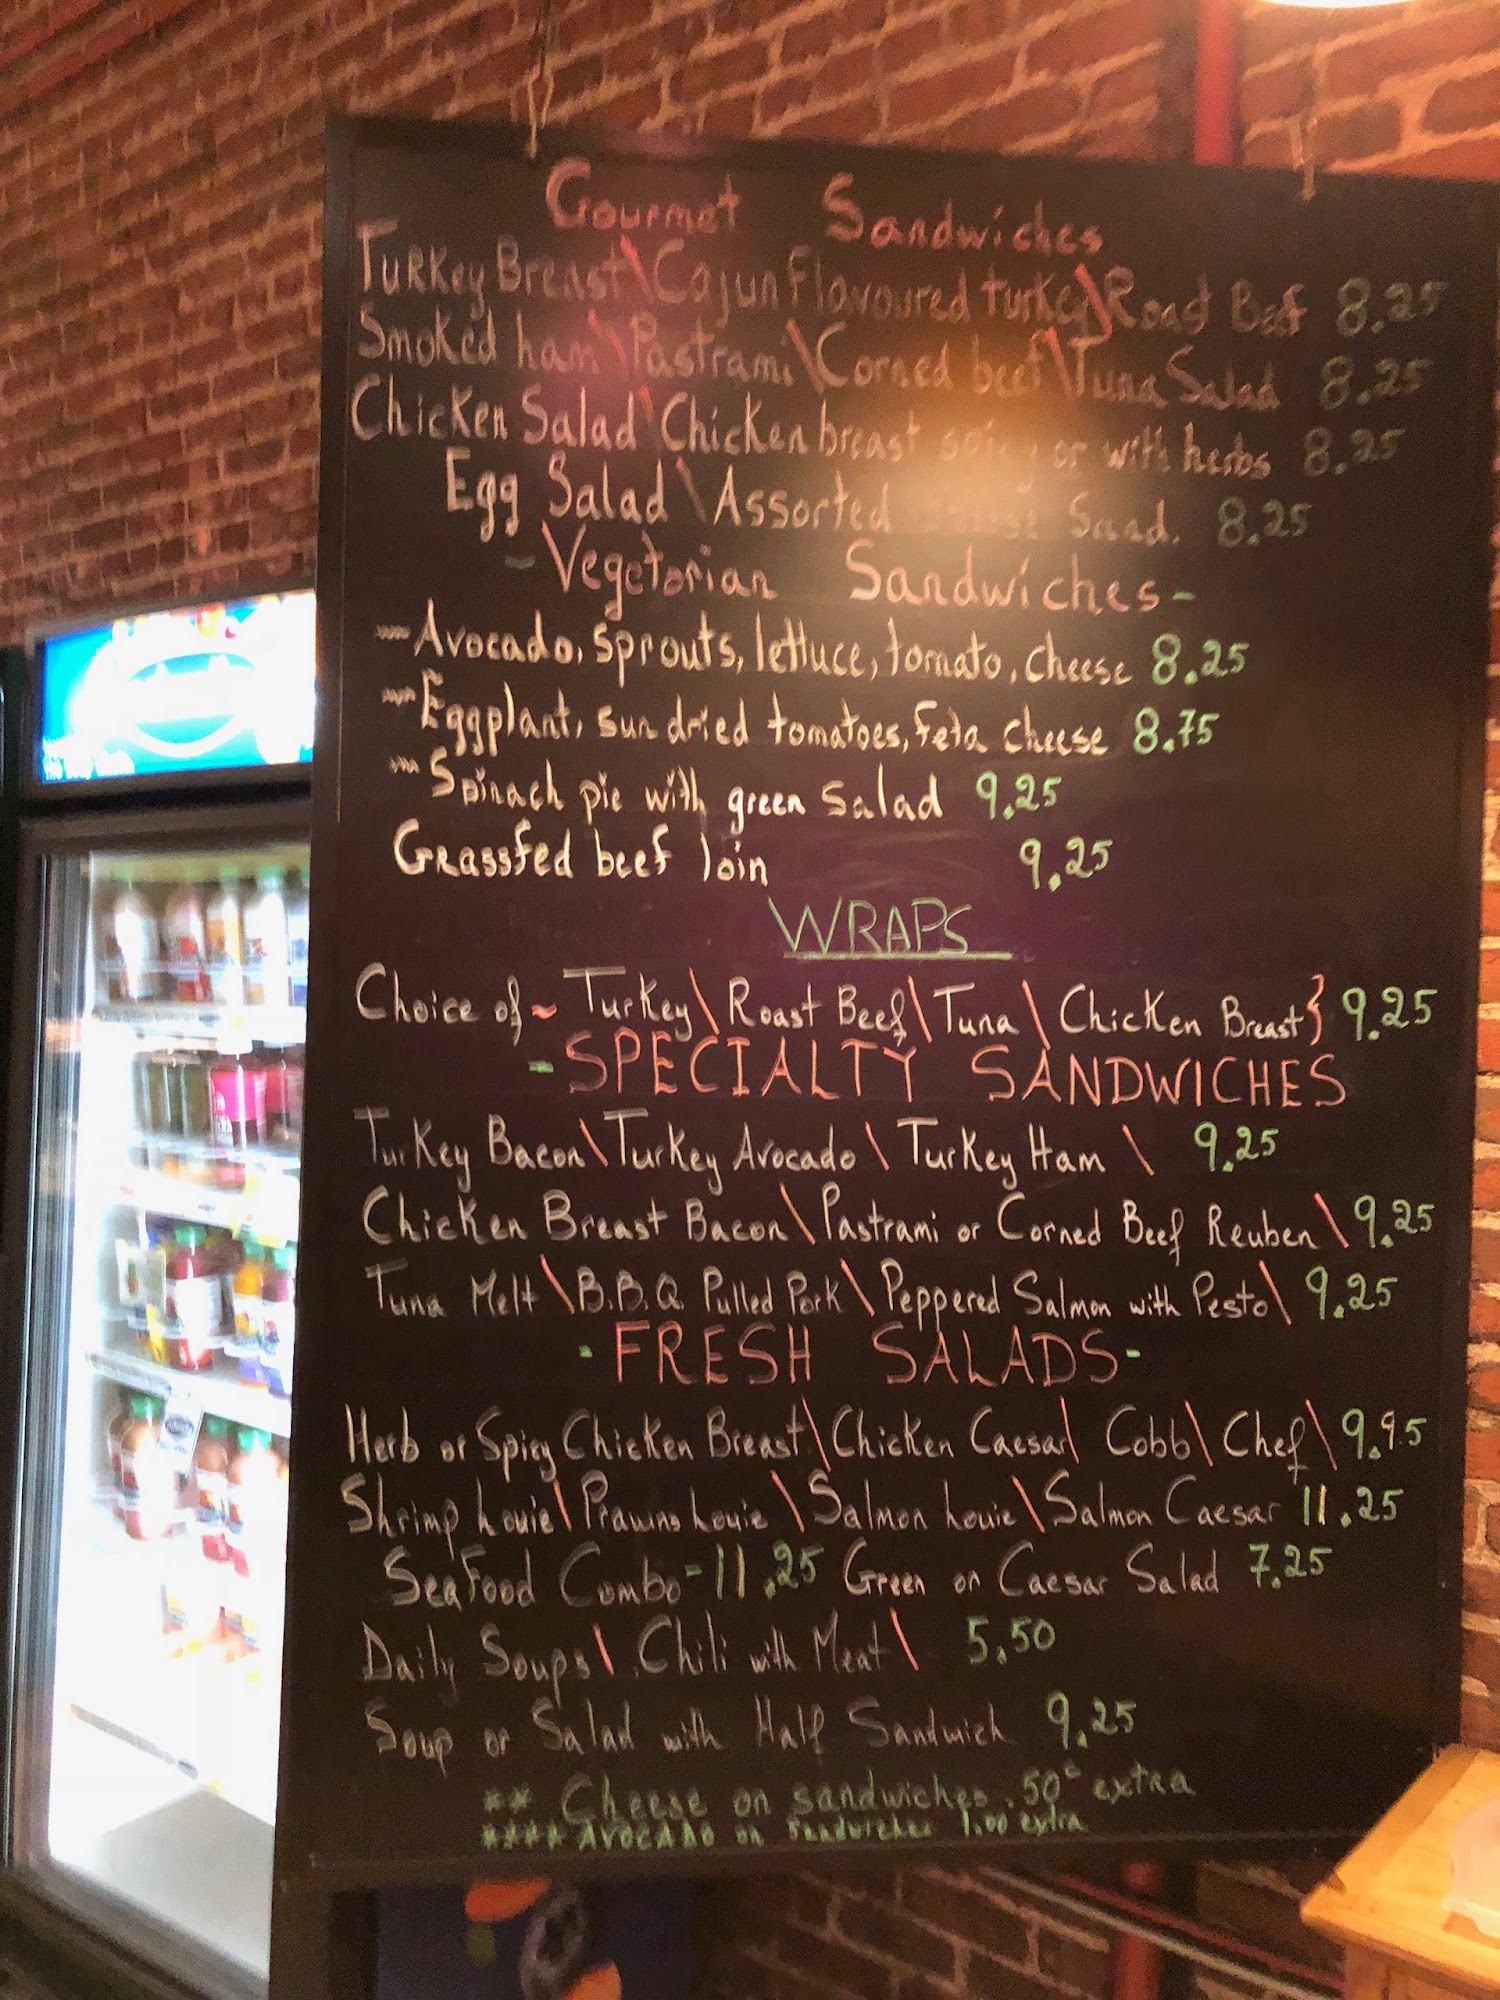 Gourmet Sandwiches
Turkey Breast\Cajun Flavoured turkey\Roast Beef 8.25
Smoked ham\Pastrami\Corned beef\Tuna Salad 8.25
Chicken Salad\Chicken breast spicy or with herbs 8.25
Egg Salad\Assorted Sand. 8.25
- Vegetarian Sandwiches -
~Avocado, sprouts, lettuce, tomato, cheese 8.25
~Eggplant, sun dried tomatoes, feta cheese 8.75
~Spinach pie with green salad 9.25
Grassfed beef loin 9.25
WRAPS
Choice of ~ Turkey\Roast Beef\Tuna\Chicken Breast} 9.25
- SPECIALTY SANDWICHES
Turkey Bacon\Turkey Avocado\Turkey Ham\ 9.25
Chicken Breast Bacon\Pastrami or Corned Beef Reuben\ 9.25
Tuna Melt\B.B.Q. Pulled Pork\Peppered Salmon with Pesto\ 9.25
- FRESH SALADS -
Herb or Spicy Chicken Breast\Chicken Caesar\ Cobb\Chef\ 9.95
Shrimp Louie\Prawns Louie\Salmon Louie\Salmon Caesar 11.25
Seafood Combo - 11.25 Green or Caesar Salad 7.25
Daily Soups\ Chili with Meat\ 5.50
Soup or Salad with Half Sandwich 9.25
** Cheese on sandwiches .50¢ extra
**** Avocado on sandwiches 1.00 extra